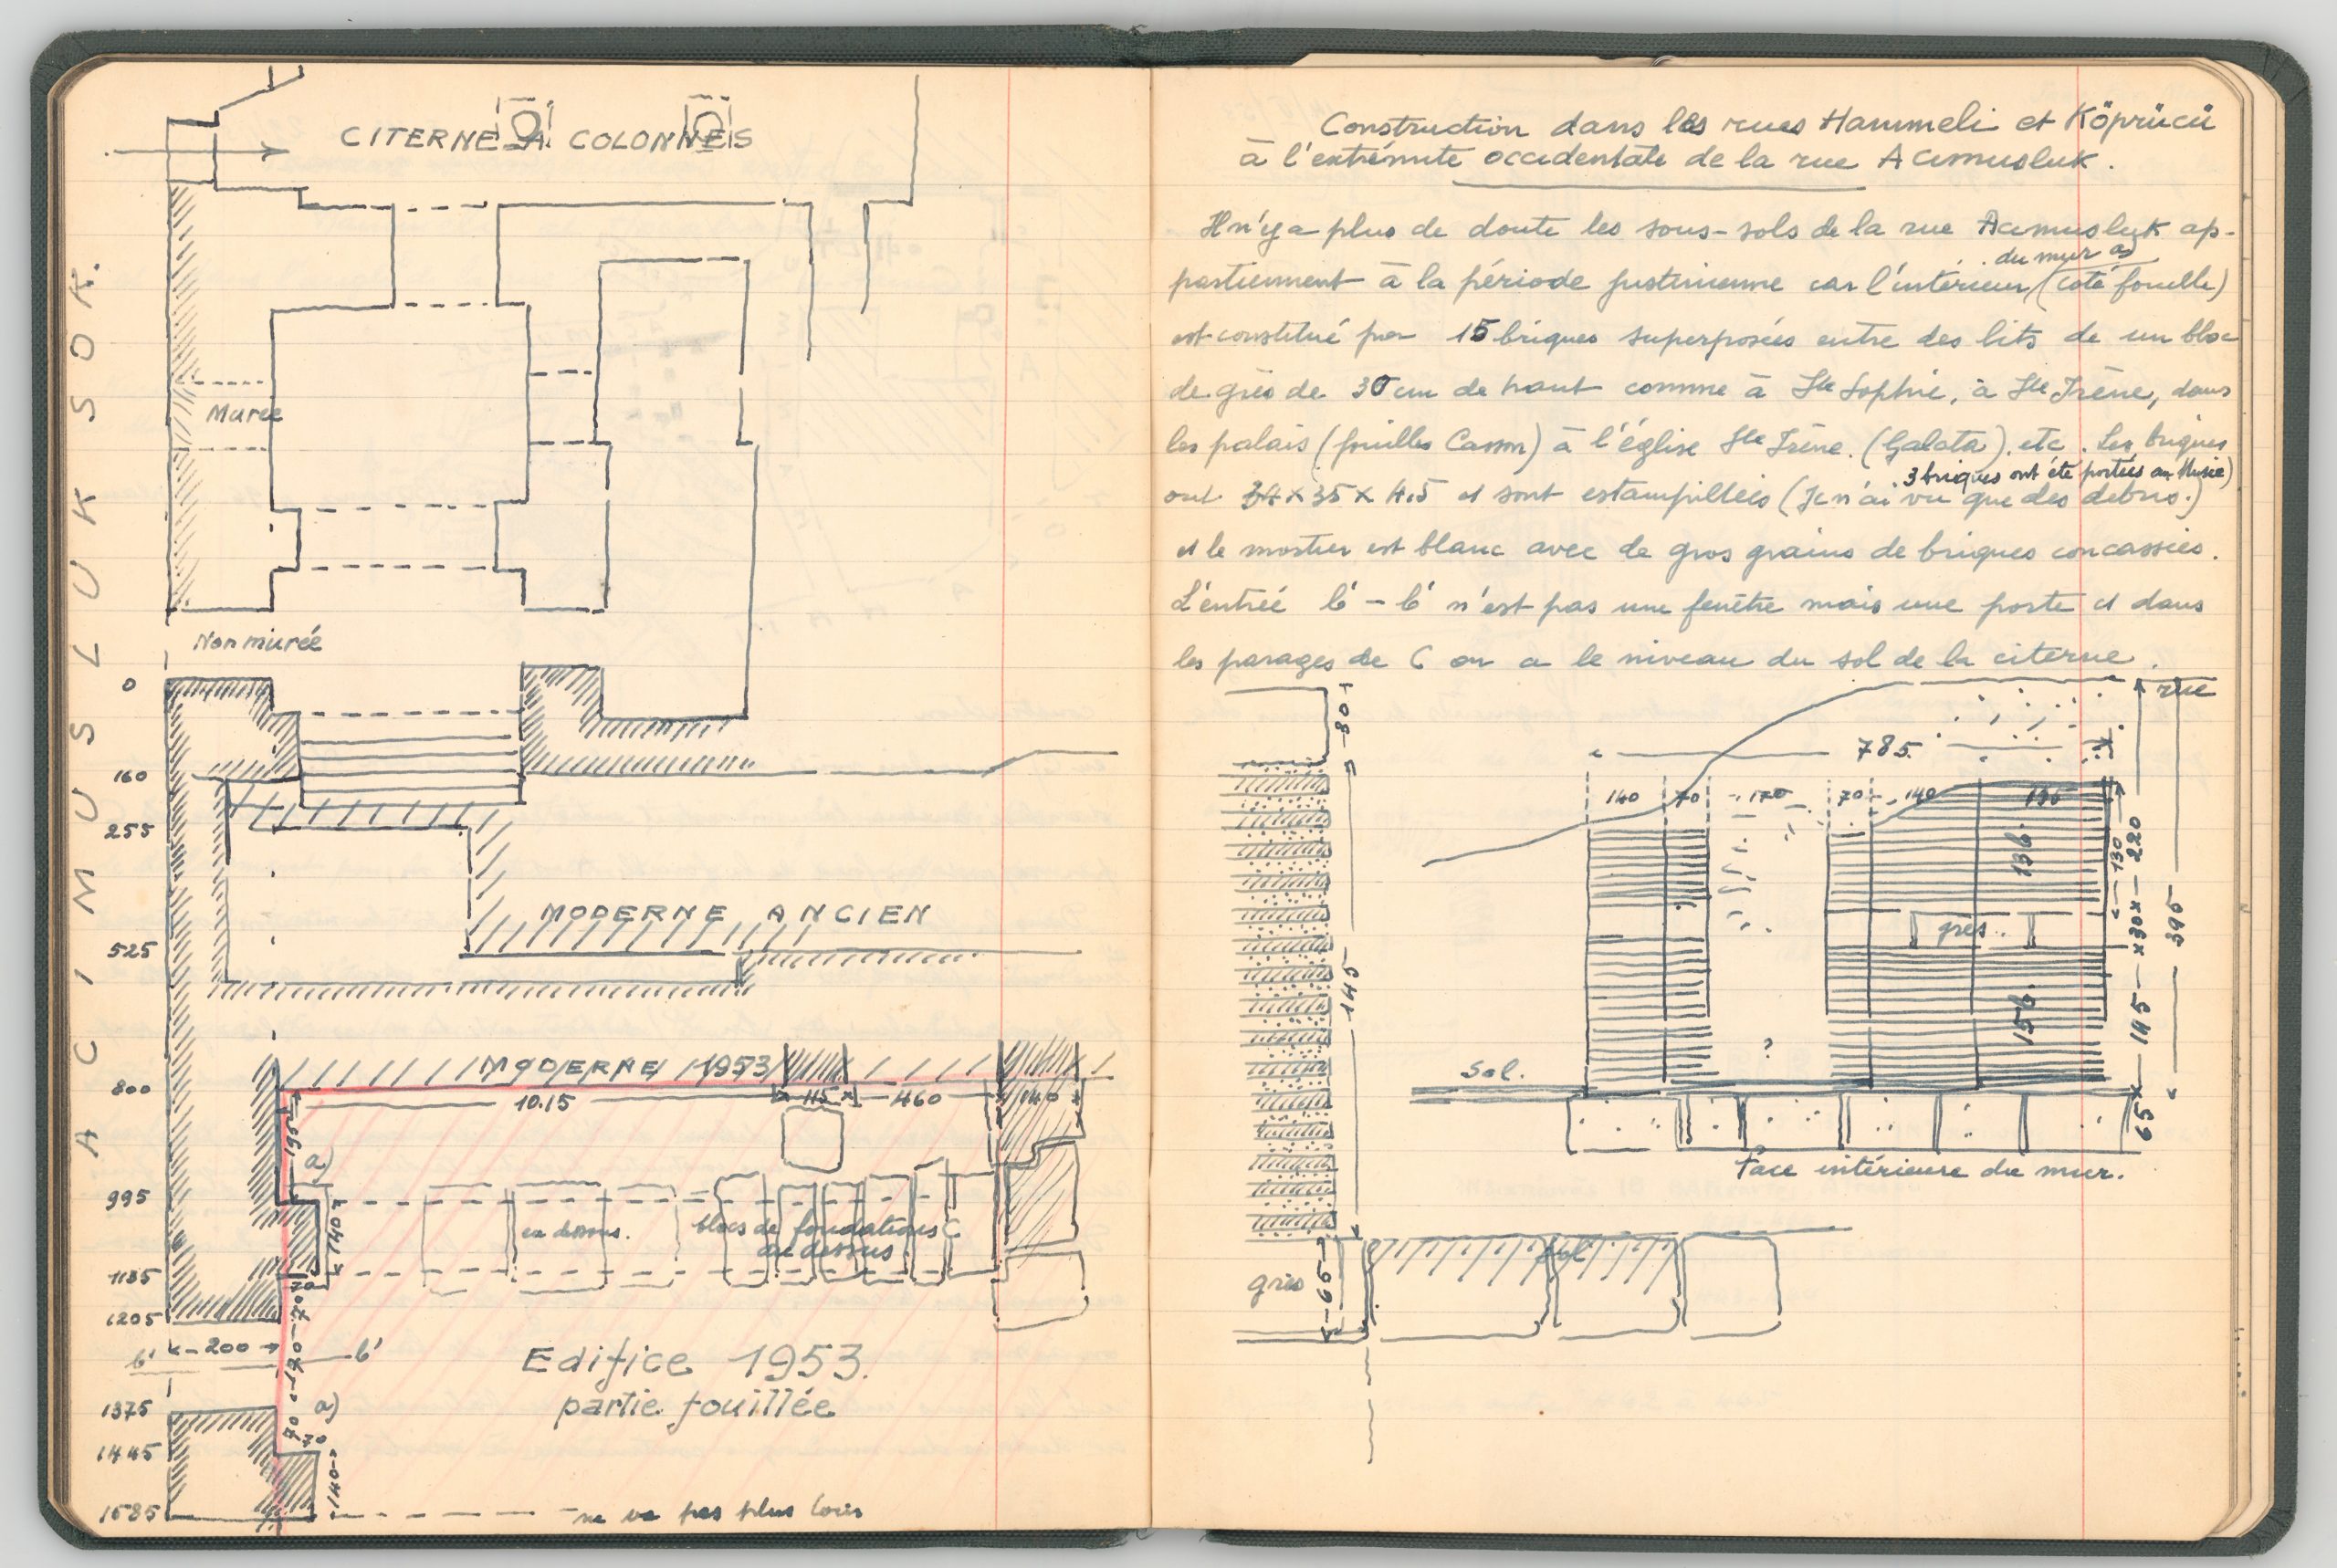 CITERNE A COLONNES
ACIMUSLUK SOK.
Murée
Non murée
0
160
255
MODERNE ANCIEN
525
MODERNE 1953
800
10.15
115
460
140
195
a)
995
140
en dessous.
blocs de fondations C
au dessus
1135
70
1205
70
200
b'
b'
170
Edifice 1953.
partie fouillée
1375
a)
70
70
1445
140
1585
ne va pas plus loin
Construction dans les rues Hammeli et Köprücü
à l'extrémité occidentale de la rue Acimusluk.
Il n'y a plus de doute les sous-sols de la rue Acimusluk ap-
du mur a)
partiennent à la période justinienne car l'intérieur (coté fouille)
est constitué par 15 briques superposées entre des lits de un bloc
de grès de 30 cm de haut comme à Ste Sophie, à Ste Irène, dans
les palais (fouilles Casson) à l'église Ste Irène. (Galata). etc. Les briques
3 briques ont été portées au Musée)
ont 34 x 35 x 4.5 et sont estampillées (Je n'ai vu que des débris.)
et le mortier est blanc avec de gros grains de briques concassées.
L'entrée b' - b' n'est pas une fenêtre mais une porte et dans
les parages de C on a le niveau du sol de la citerne.
30
rue
785
140
70
170
70
140
195
13 b.
130
220
grès
30
395
145
15 b.
145
?
Sol.
65
Face intérieure du mur.
Sol
grès
65